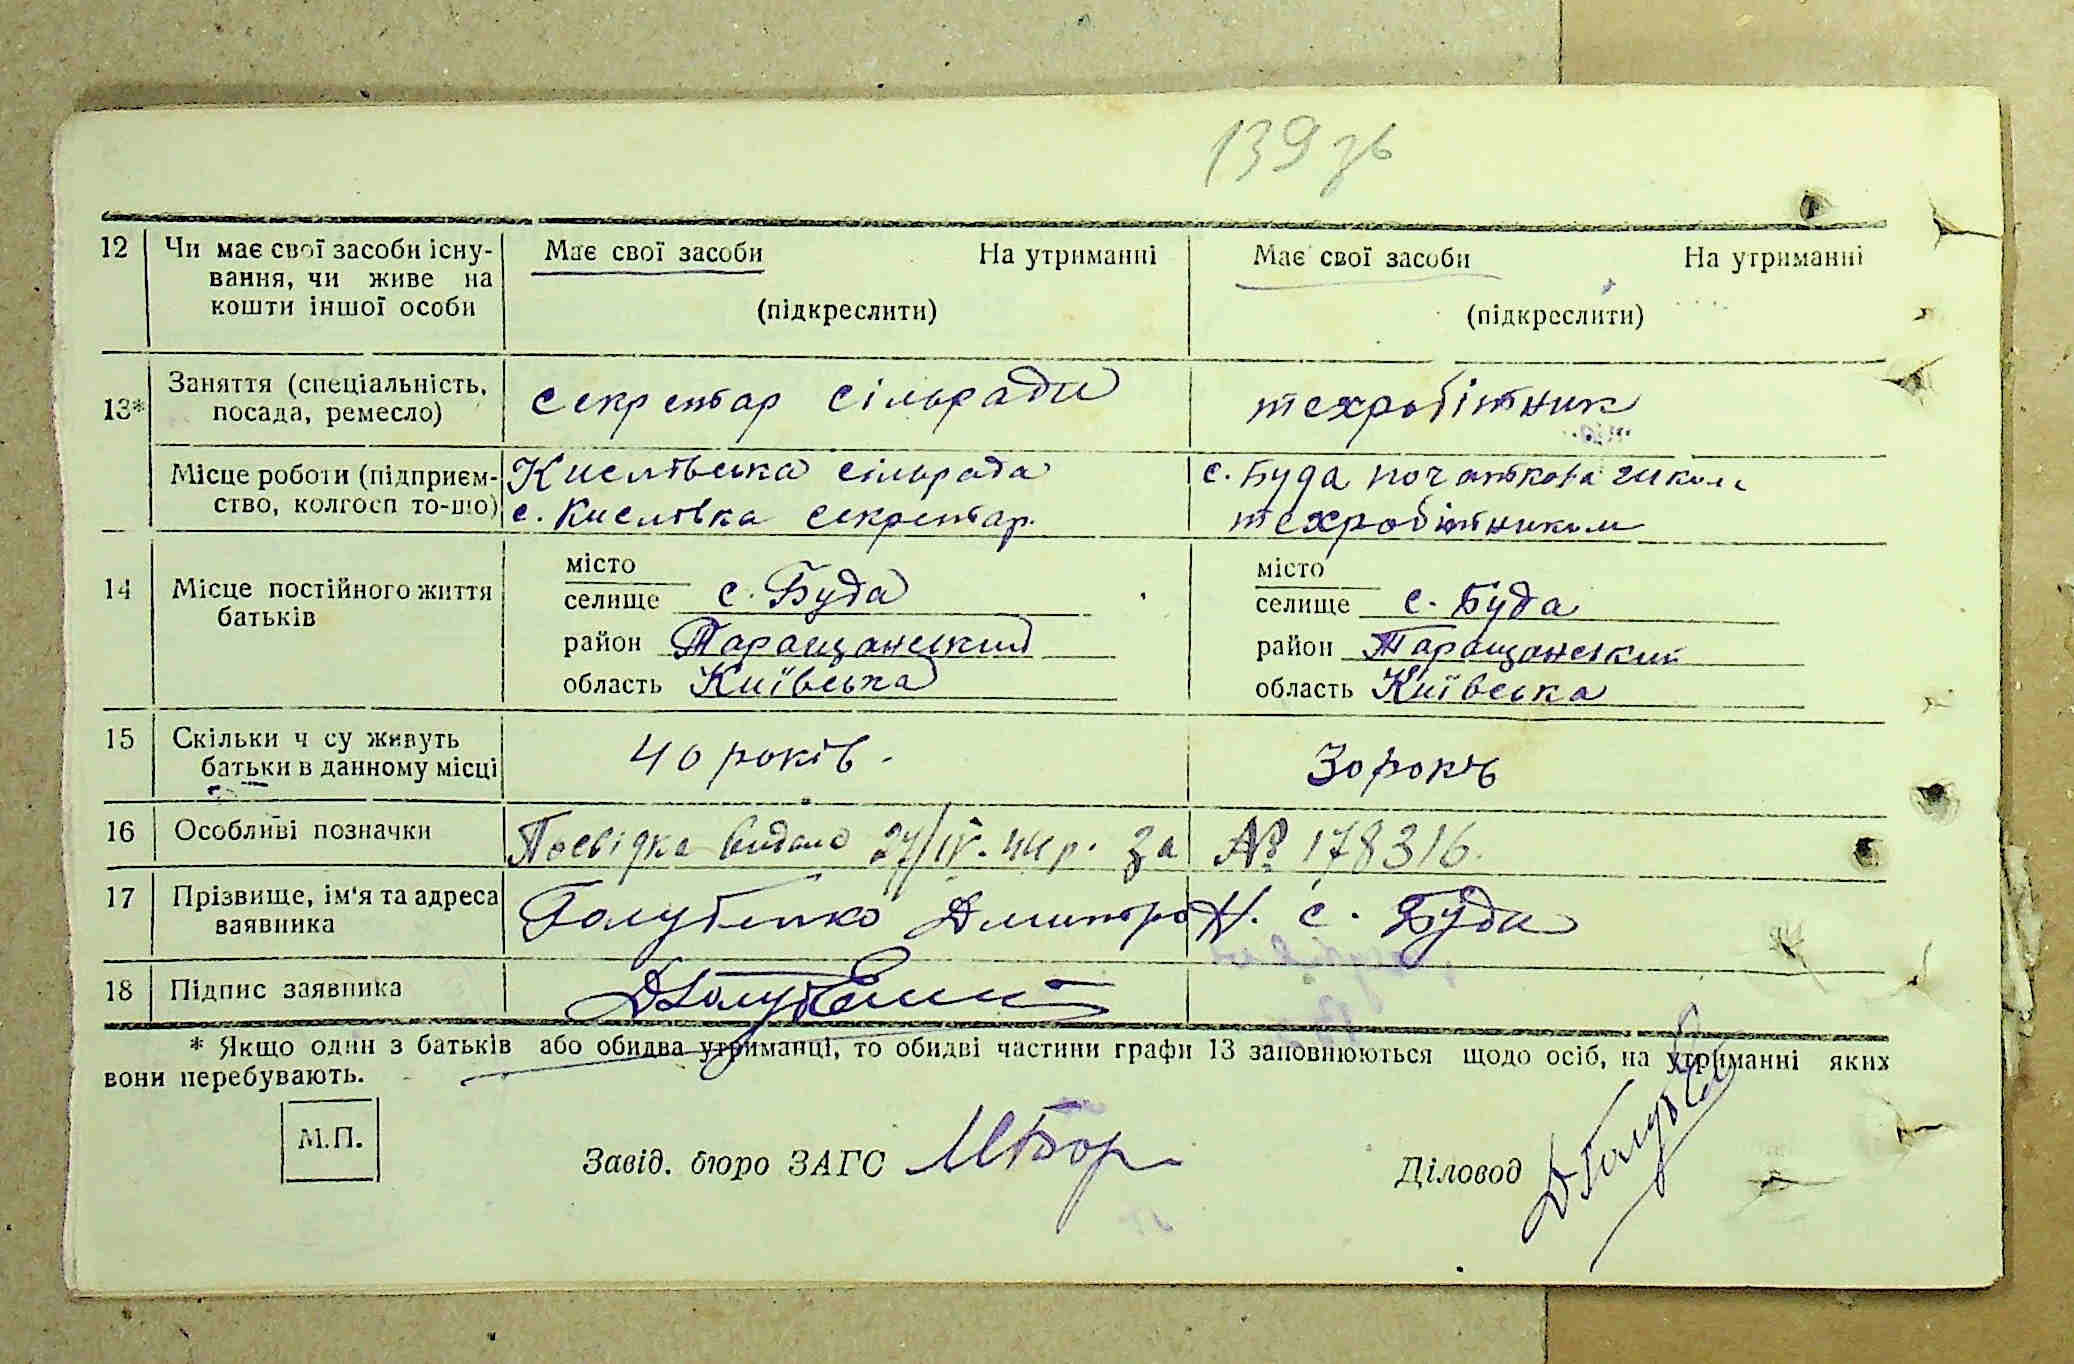 139 зв
12 Чи має свої засоби існу- Має свої засоби На утриманні Має свої засоби На утриманні
вання, чи живе на
кошти іншої особи (підкреслити) (підкреслити)
13* Заняття (спеціальність, секретар сільради техробітник
посада, ремесло)
Місце роботи (підприєм- Кислівська сільрада с. Буда початкова школа
ство, колгосп то-що) с. Кислівка секретар. техробітником
14 Місце постійного життя місто місто
батьків селище с. Буда селище с. Буда
район Таращанський район Таращанський
область Київська область Київська
15 Скільки ч су живуть 40 років. 30 років
батьки в данному місці
16 Особливі позначки Посвідка видана 27/IV. 44 р. за № 178316.
17 Прізвище, ім'я та адреса Голубенко Дмитро Н. с. Буда
заявника
18 Підпис заявника ДГолубенко
* Якщо один з батьків або обидва утриманці, то обидві частини графи 13 заповнюються щодо осіб, на утриманні яких
вони перебувають.
М.П. Завід. бюро ЗАГС Діловод ДГолуб